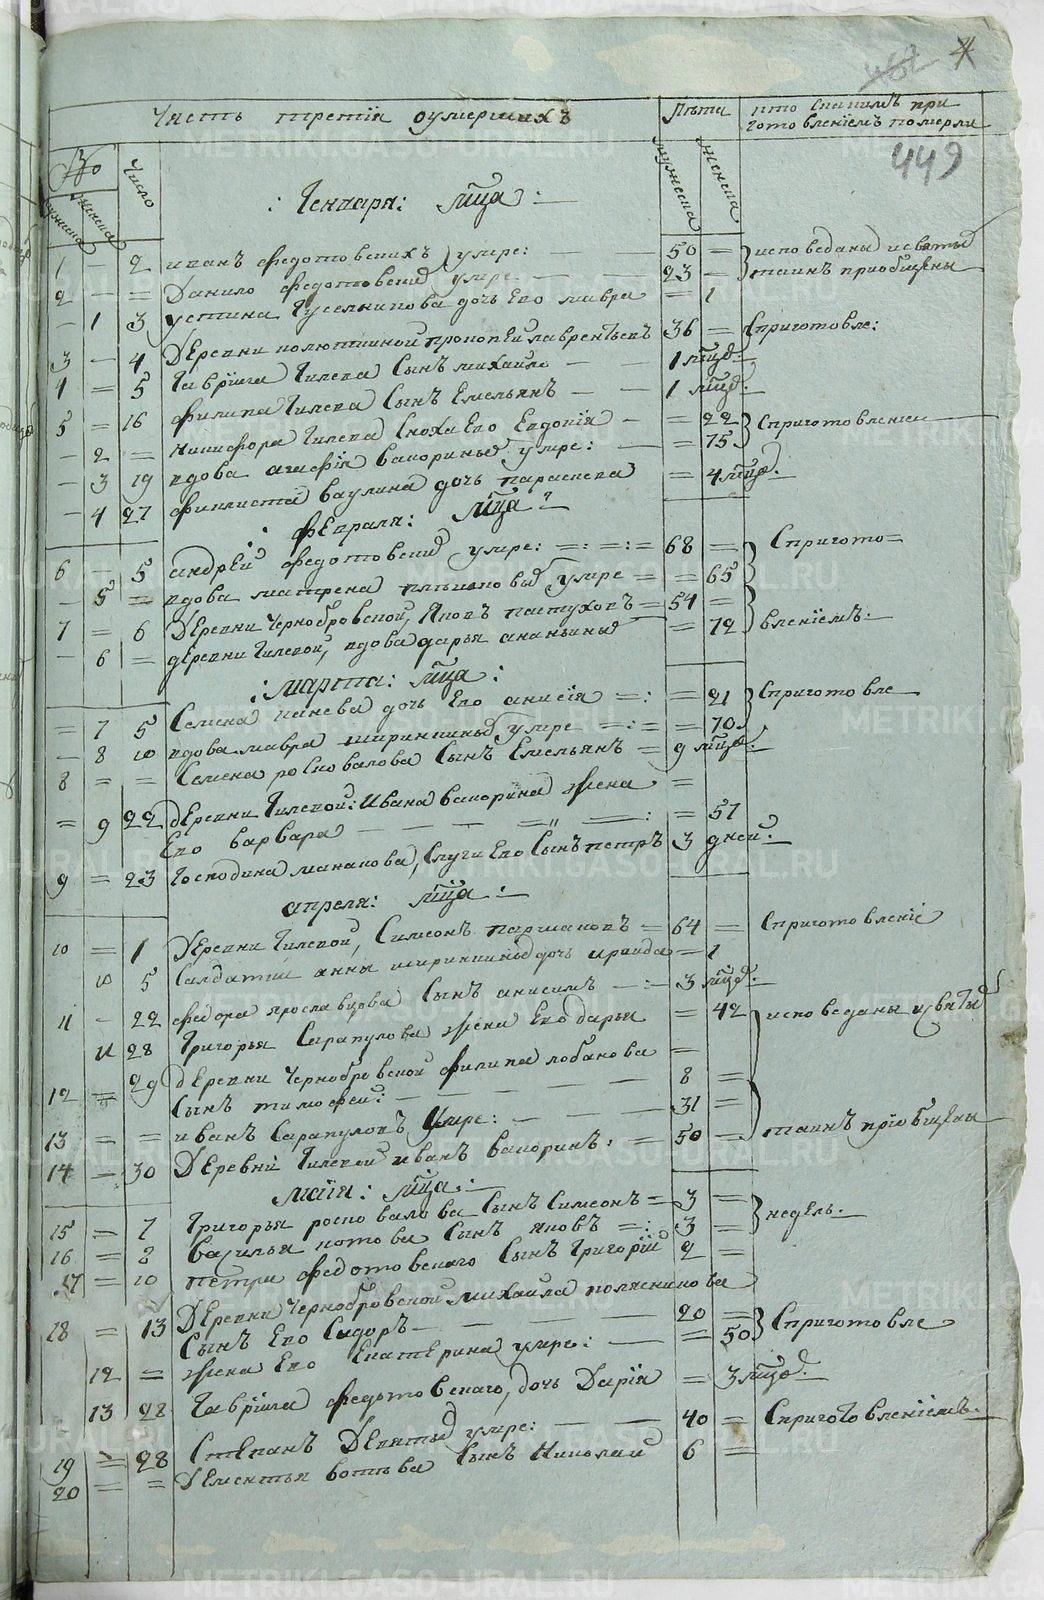 462 4
Часть третїя оумершихъ Лѣта кто снакимъ при
готовленїемъ померли
449
No Число мужеска женска
мужеска женска
: Генваря: мц̃а :
1 — 2 иванъ федотовскихъ умре: 50 = исповеданы исвятыхъ
2 — = Данило федотовскихъ умре — 23 — таинъ приобщены
— 1 3 устина Гусельникова дочь Его мавра = 1
3 — 4 Деревни колюткиной прокопей лаврентьевъ 36 = Сприготовле:
4 = 5 Гаврiила Гилева Сынъ михайло — 1 мц̃ъ:
5 = 16 филипа Гилева Сынъ Емельянъ — 1 мц̃ъ:
— 2 = Никифора Гилева Сноха Его Евдокїя — = 22 Сприготовленiем
— 3 19 вдова агафїя вакориныхъ умре: — = 75
— 4 27 феклиста ваулина дочь параскева = 4 мц̃а:
: февраля: мц̃а :
6 — 5 андрей федотовских умре: =:=:= 68 = Сприготo=
— 5 = вдова матрена умре = = 65
7 = 6 Деревни Чернобровской, Яковъ пастуховъ = 54 =
— 6 = деревни Гилевой, вдова дарья ананьиных = 72 вленїемъ:
: марта: мц̃а :
= 7 5 Семена дочь Его анисїя =: = 21 Сприготовле
— 8 10 вдова мавра ширинкиных умре =:= = 70
8 = = Семена росковалова Сынъ Емельянъ = 9 мц̃ъ:
= 9 22 деревни Гилевой: Ивана вакорина жена =
Его варвара — — — = 57
9 = 23 Господина манакова, Слуги Его Сынъ петръ 3 дней:
апреля: мц̃а :
10 = 1 Деревни Гилевой, Симеонъ паршаковъ = 64 = Сприготовленїе
10 5 Салдатки анны ширинкиных дочь ираида = 1
11 - 22 федора ярославцова Сынъ анисимъ —:— 3 мц̃ъ:
11 28 Григорья Сарапулова жена Его дарья = 42 исповеданы исвятых
12 = 29 деревни Чернобровской филипа лобанова =
Сынъ тимофей: — — — — 8 =
13 = = иванъ Сарапуловъ умре: — — — 31 =
14 = 30 Деревни Гилевой иванъ вакоринъ: = 50 — таинъ прїобщены
маїя: мц̃а :
15 = 7 Григорья росковалова Сынъ Симеонъ = 3 =
16 = 8 василья котова Сынъ яковъ =: 3 = недель:
17 = 10 петра федотовскаго Сынъ Григорїй 2 =
18 = 13 Деревни Чернобровской михаила поляникова
Сынъ Его Сидоръ — — — 20 = Сприготовле
12 = жена Его Екатерина умре: — = 50
13 28 Гаврiила федотовскаго, дочь Дарїя = 3 мц̃ъ:
19 = 28 Степанъ Девятых умре: — — 40 = Сприготовленїемъ.
20 = = Дементья вотева Сынъ Николай 6 =